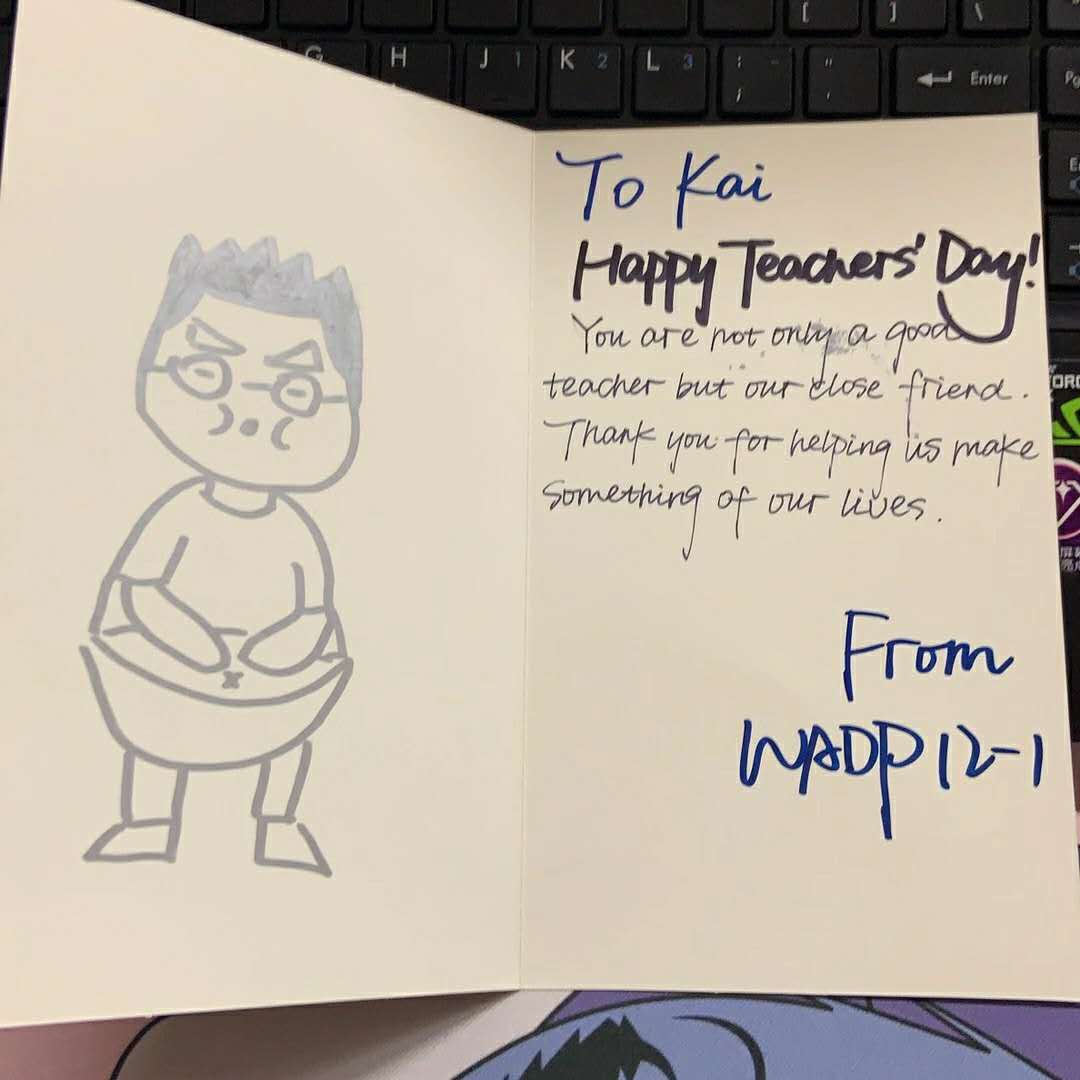 [ ] \
G H J 1 K 2 L 3 : ; " ' Enter
To Kai
Happy Teachers' Day!
You are not only a good
teacher but our close friend.
Thank you for helping us make
something of our lives.
From
WADP 12-1